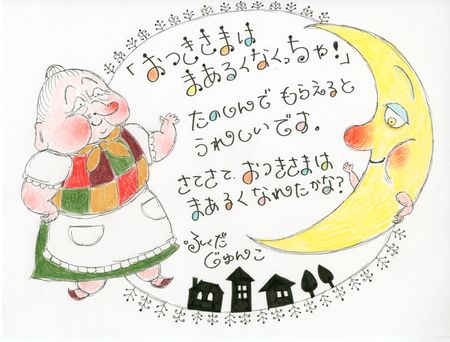 「おつきさまは
まあるくなくっちゃ!」
たのしんで もらえると
うれしいです。
さてさて、おつきさまは
まあるく なれたかな?
ふくだ
じゅんこ